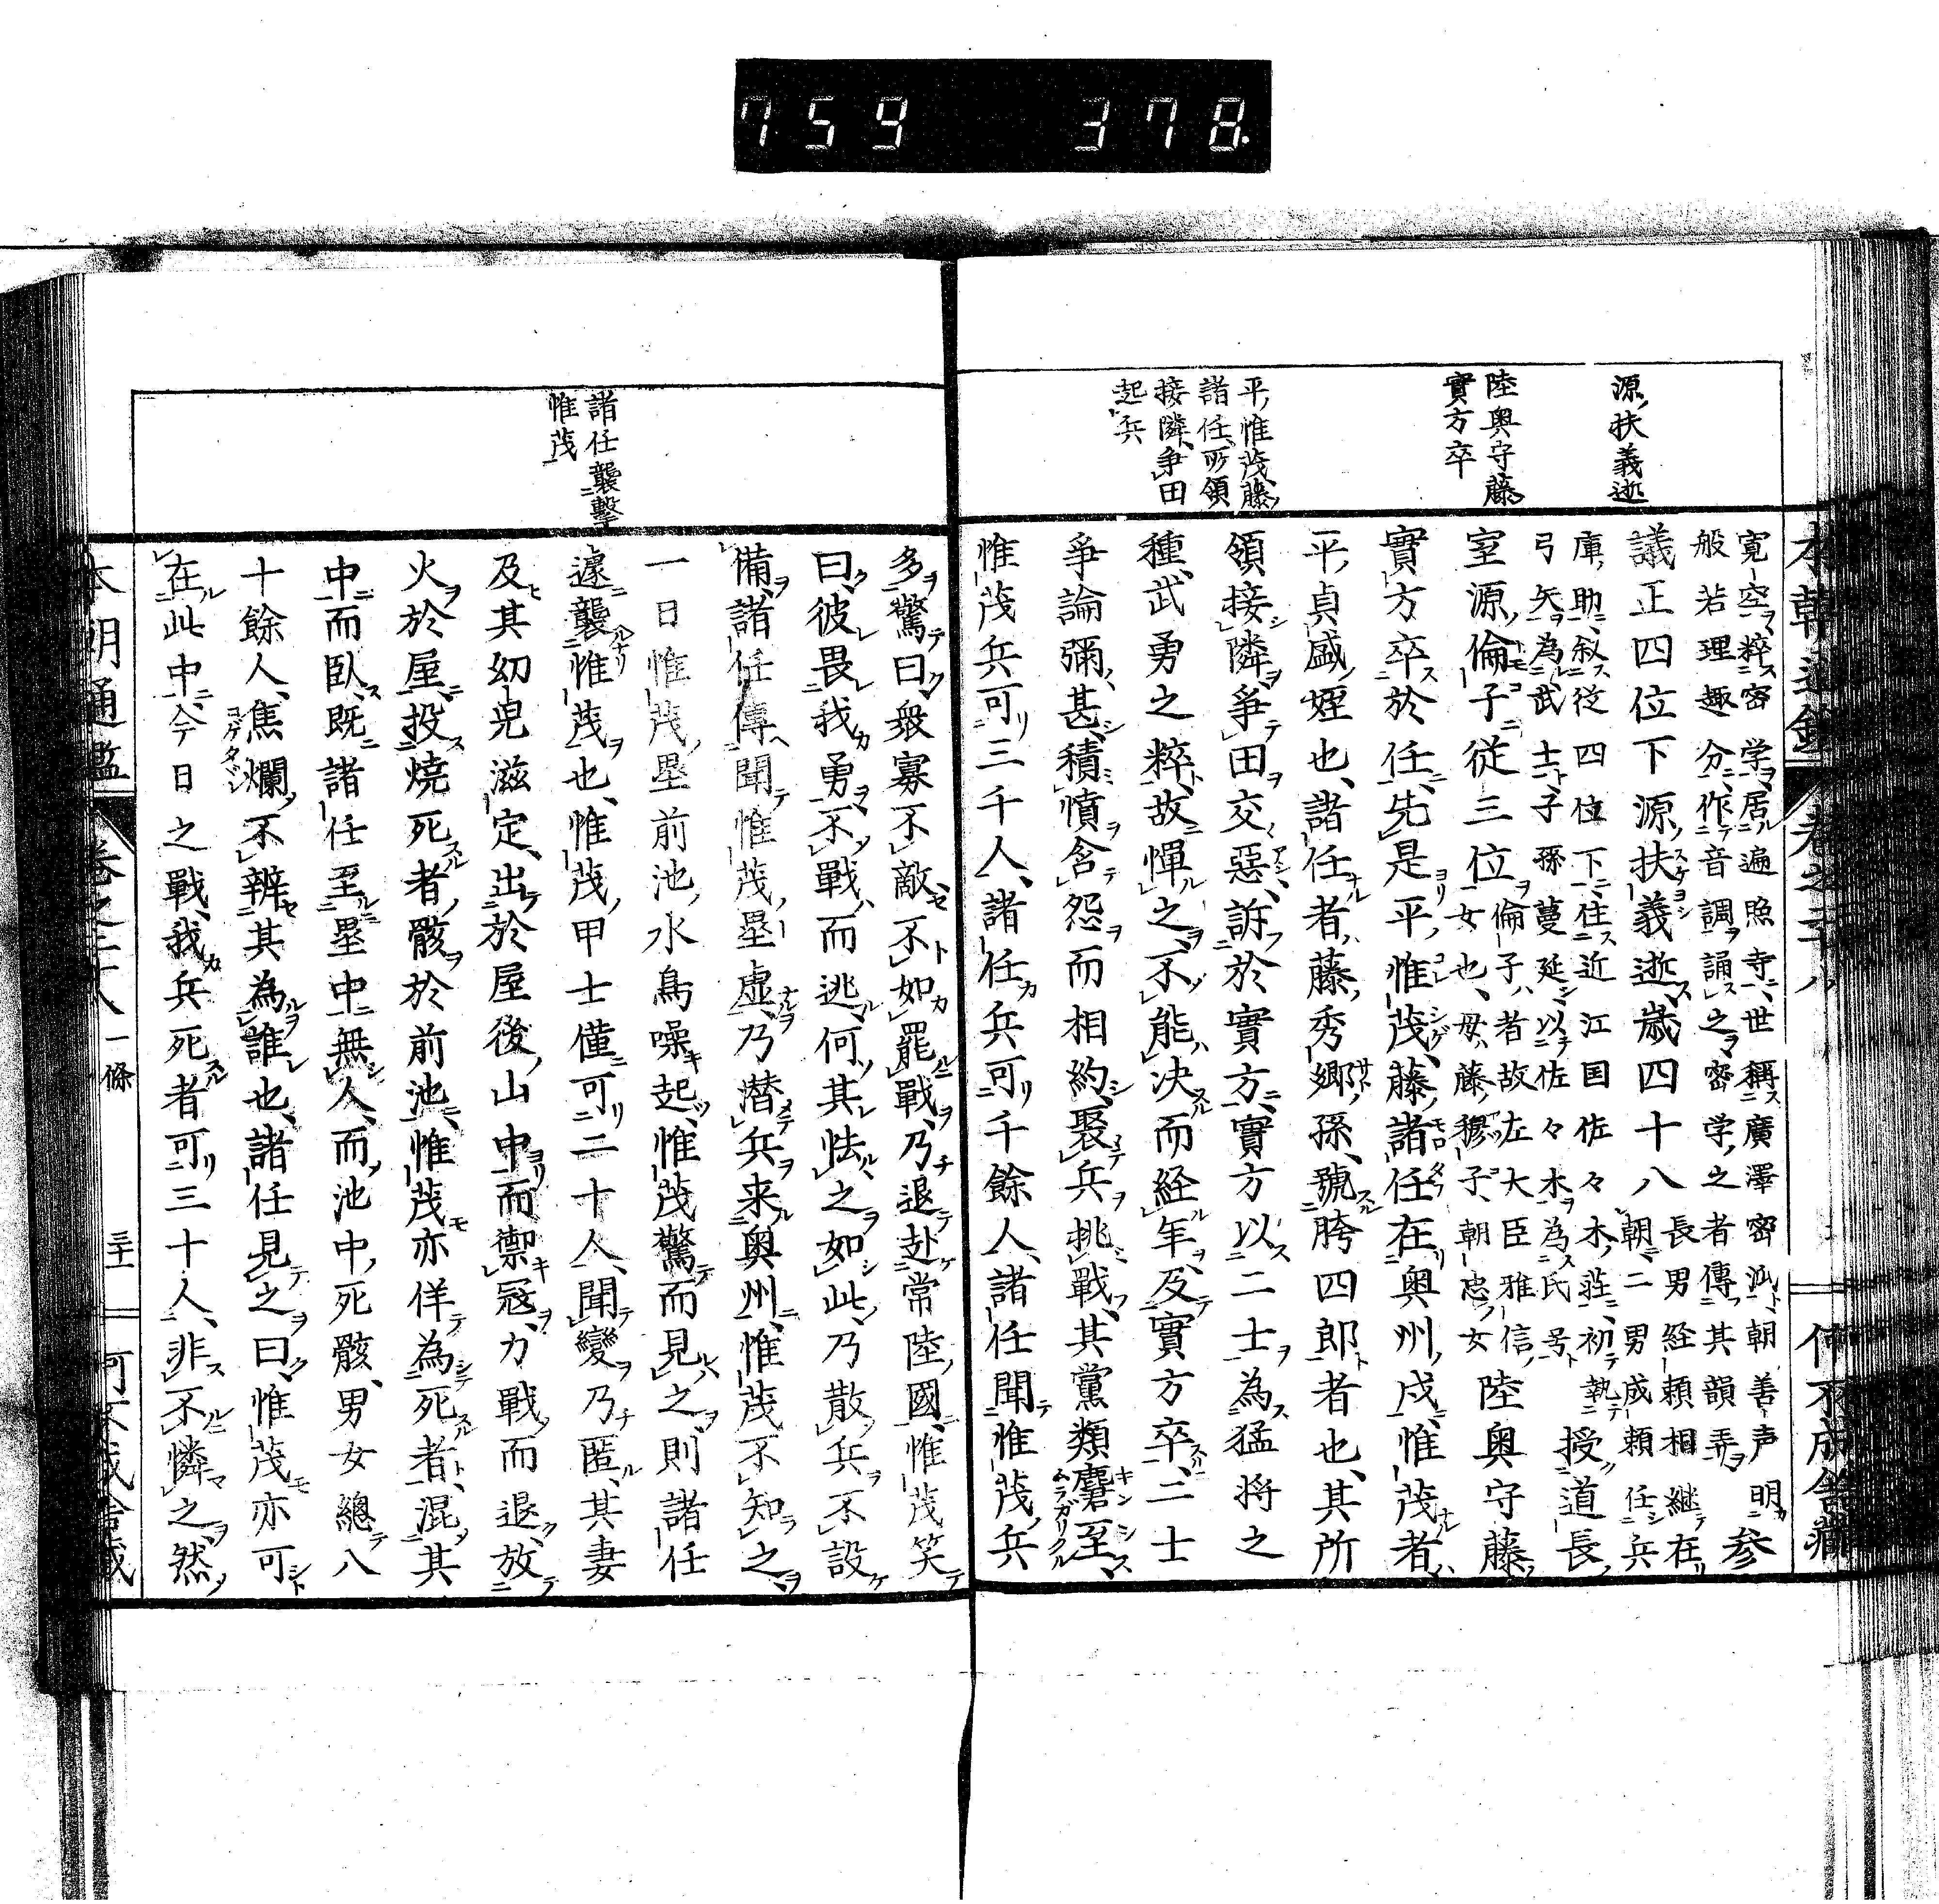 759 378.
源扶義逝
陸奥守藤
實方卒
平惟茂藤
諸任所領
接隣争田
起兵
寛空粹密学居遍照寺世稱廣澤密汕朝善声明
般若理趣分作音調誦之密学之者傳其韻弄
参
議正四位下源扶義逝歳四十八
長男経頼相継在
朝二男成頼任兵
庫助叙従四位下住近江国佐々木荘初執
弓矢為武士子孫蔓延以佐々木為氏号
授道長
室源倫子従三位
倫子者故左大臣雅信
女也母藤穆子朝忠女
陸奥守藤
實方卒於任先是平惟茂藤諸任在奥州戍惟茂者
平貞盛姪也諸任者藤秀郷孫號胯四郎者也其所
領接隣爭田交惡訴於實方實方以二士為猛将之
種武勇之粹故憚之不能决而経年及實方卒二士
爭論彌甚積憤含怨而相約聚兵挑戰其黨類麕至
惟茂兵可三千人諸任兵可千餘人諸任聞惟茂兵
諸任襲擊
惟茂
多驚曰衆寡不敵不如罷戰乃退赴常陸國惟茂笑
曰彼畏我勇不戰而逃何其怯之如此乃散兵不設
備諸任傳聞惟茂壘虚乃潜兵来奥州惟茂不知之
一日惟茂壘前池水鳥噪起惟茂驚而見之則諸任
遽襲惟茂也惟茂甲士僅可二十人聞變乃匿其妻
及其幼兒滋定出於屋後山中而禦寇力戰而退放
火於屋投燒死者骸於前池惟茂亦佯為死者混其
中而臥既諸任至壘中無人而池中死骸男女總八
十餘人焦爛不辨其為誰也諸任見之曰惟茂亦可
在此中今日之戰我兵死者可三十人非不憐之然
本朝通鑑 卷之二十八 一條